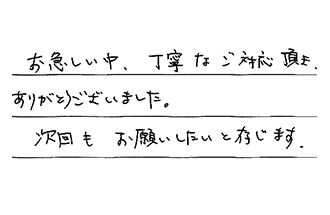 お急しい中、丁寧なご対応頂き、
ありがとうございました。
次回も お願いしたいと存じます.